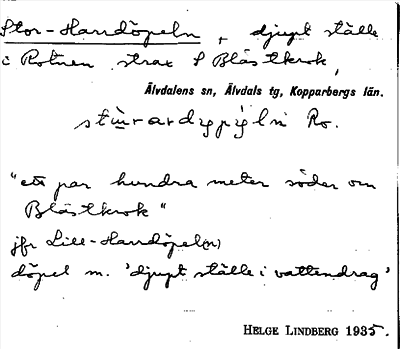 Stor-Harrdöpeln, djupt ställe
i Rotnen strax S Blästkrok,
Älvdalens sn, Älvdals tg, Kopparbergs län.
Ro.
"ett par hundra meter söder om
Blästkrok"
jfr Lill-Harrdöpel(n)
döpel m. 'djupt ställe i vattendrag'
HELGE LINDBERG 1935.